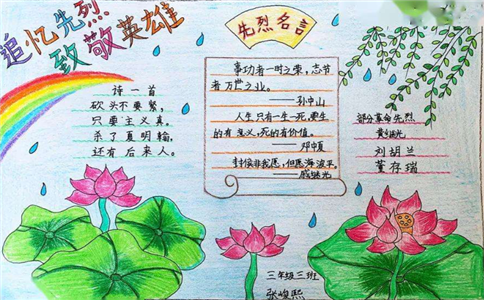 追忆先烈
致敬英雄
先烈名言
诗一首
砍头不要紧,
只要主义真。
杀了夏明翰,
还有后来人。
事功者一时之荣,志节
者万世之业。
——孙中山
人生只一生一死,要生
的有意义,死的有价值。
——邓中夏
封侯非我愿,但愿海波平。
——戚继光
部分革命先烈
黄继光
刘胡兰
董存瑞
三年级三班
张峻熙